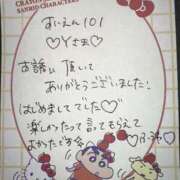 CRAYON
SANRIO CHARACTERS
すいえん101
♡Yさま♡
お誘い頂いて
ありがとうございました!
はじめましてでした♡
楽しかったって言ってもらえて
よかったです